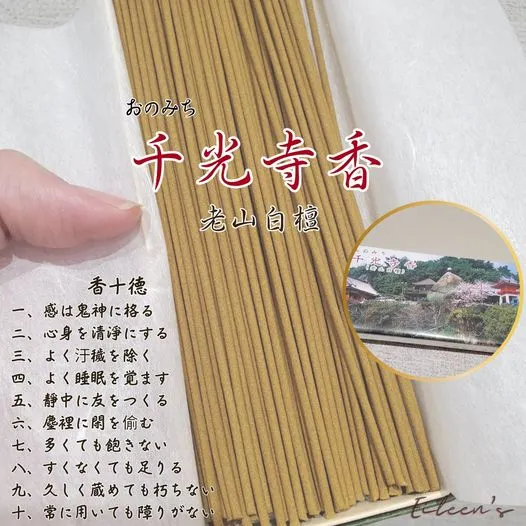 おのみち
千光寺香
老山白檀
おのみち
千光寺香
香十徳
一、感は鬼神に格る
二、心身を清淨にする
三、よく汙穢を除く
四、よく睡眠を覚ます
五、靜中に友をつくる
六、塵裡に閑を偷む
七、多くても飽きない
八、すくなくても足りる
九、久しく蔵めても朽ちない
十、常に用いても障りがない
Eileen's